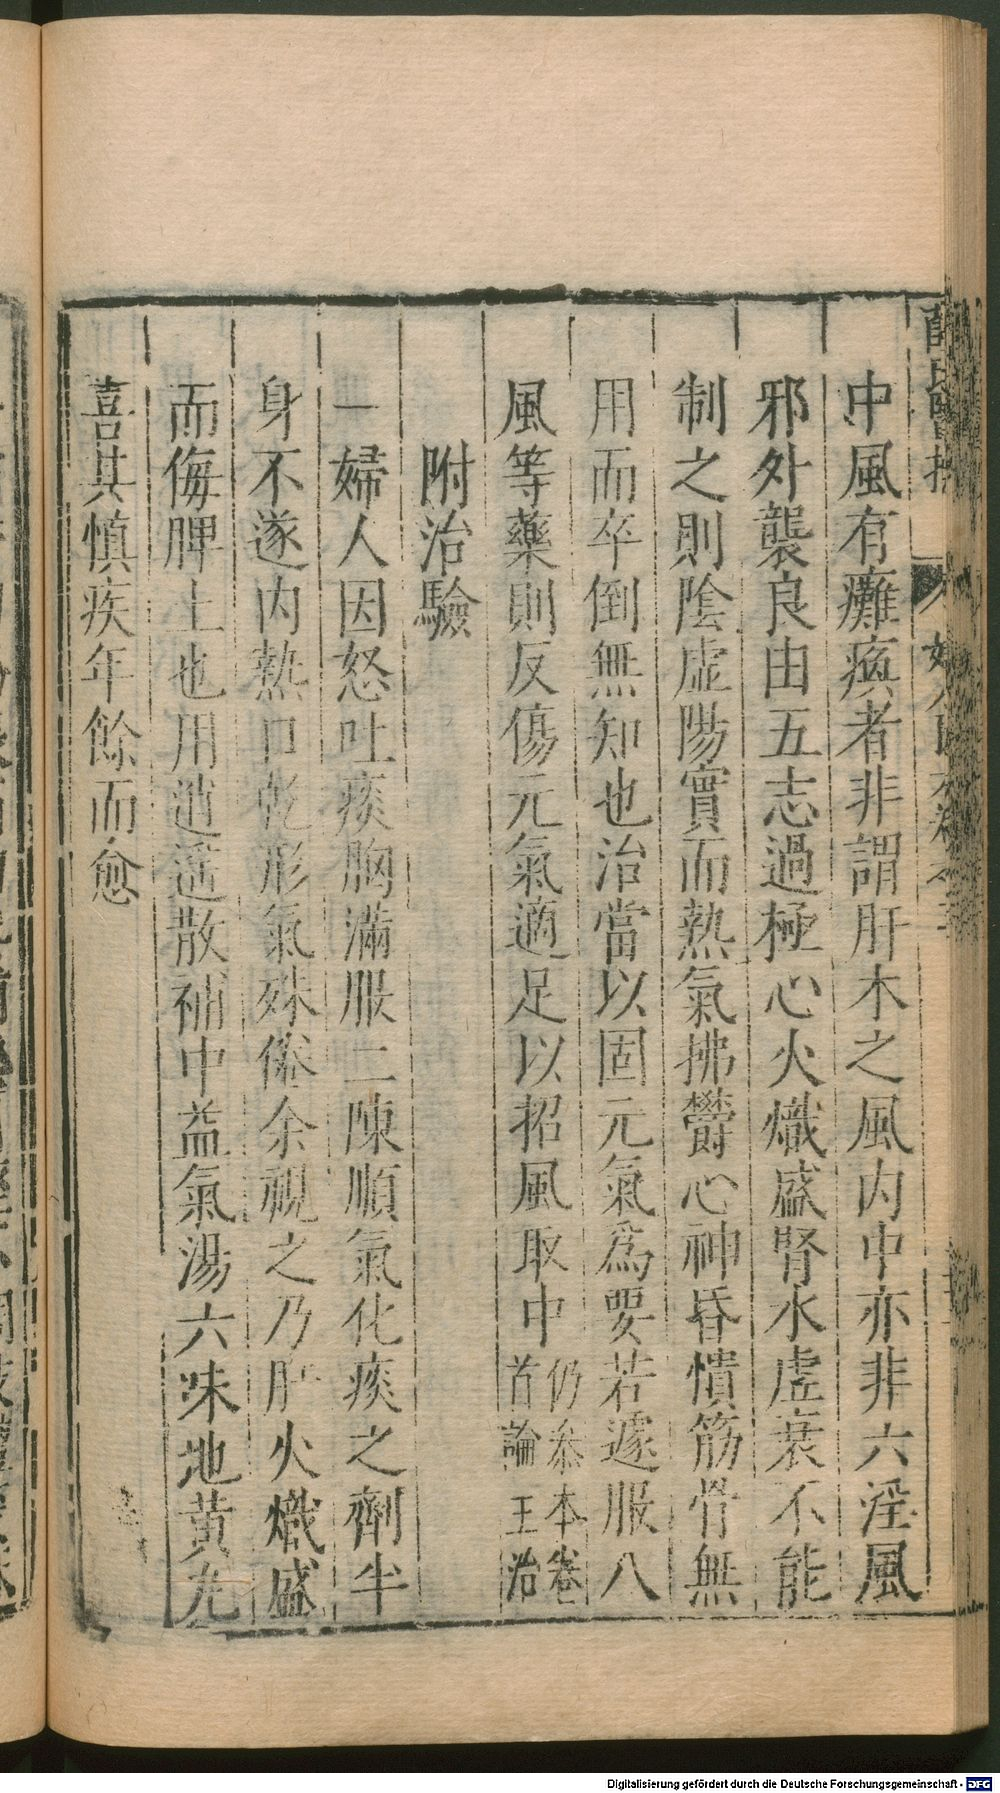 中風有癱瘓者非謂肝木之風内中亦非六淫風
邪外襲良由五志過極心火熾盛腎水虚衰不能
制之則陰虚陽實而熱氣拂欝心神昏憒筋骨無
用而卒倒無知也治當以固元氣爲要若遽服八
風等藥則反傷元氣適足以招風取中仍叅本卷
首論王治
附治驗
一婦人因怒吐痰胸滿服二陳順氣化痰之劑半
身不遂内熱口乾形氣殊倦余視之乃肝火熾盛
而侮脾土也用逍遥散補中益氣湯六味地黄丸
喜其慎疾年餘而愈
Digitalisierung gefördert durch die Deutsche Forschungsgemeinschaft - DFG